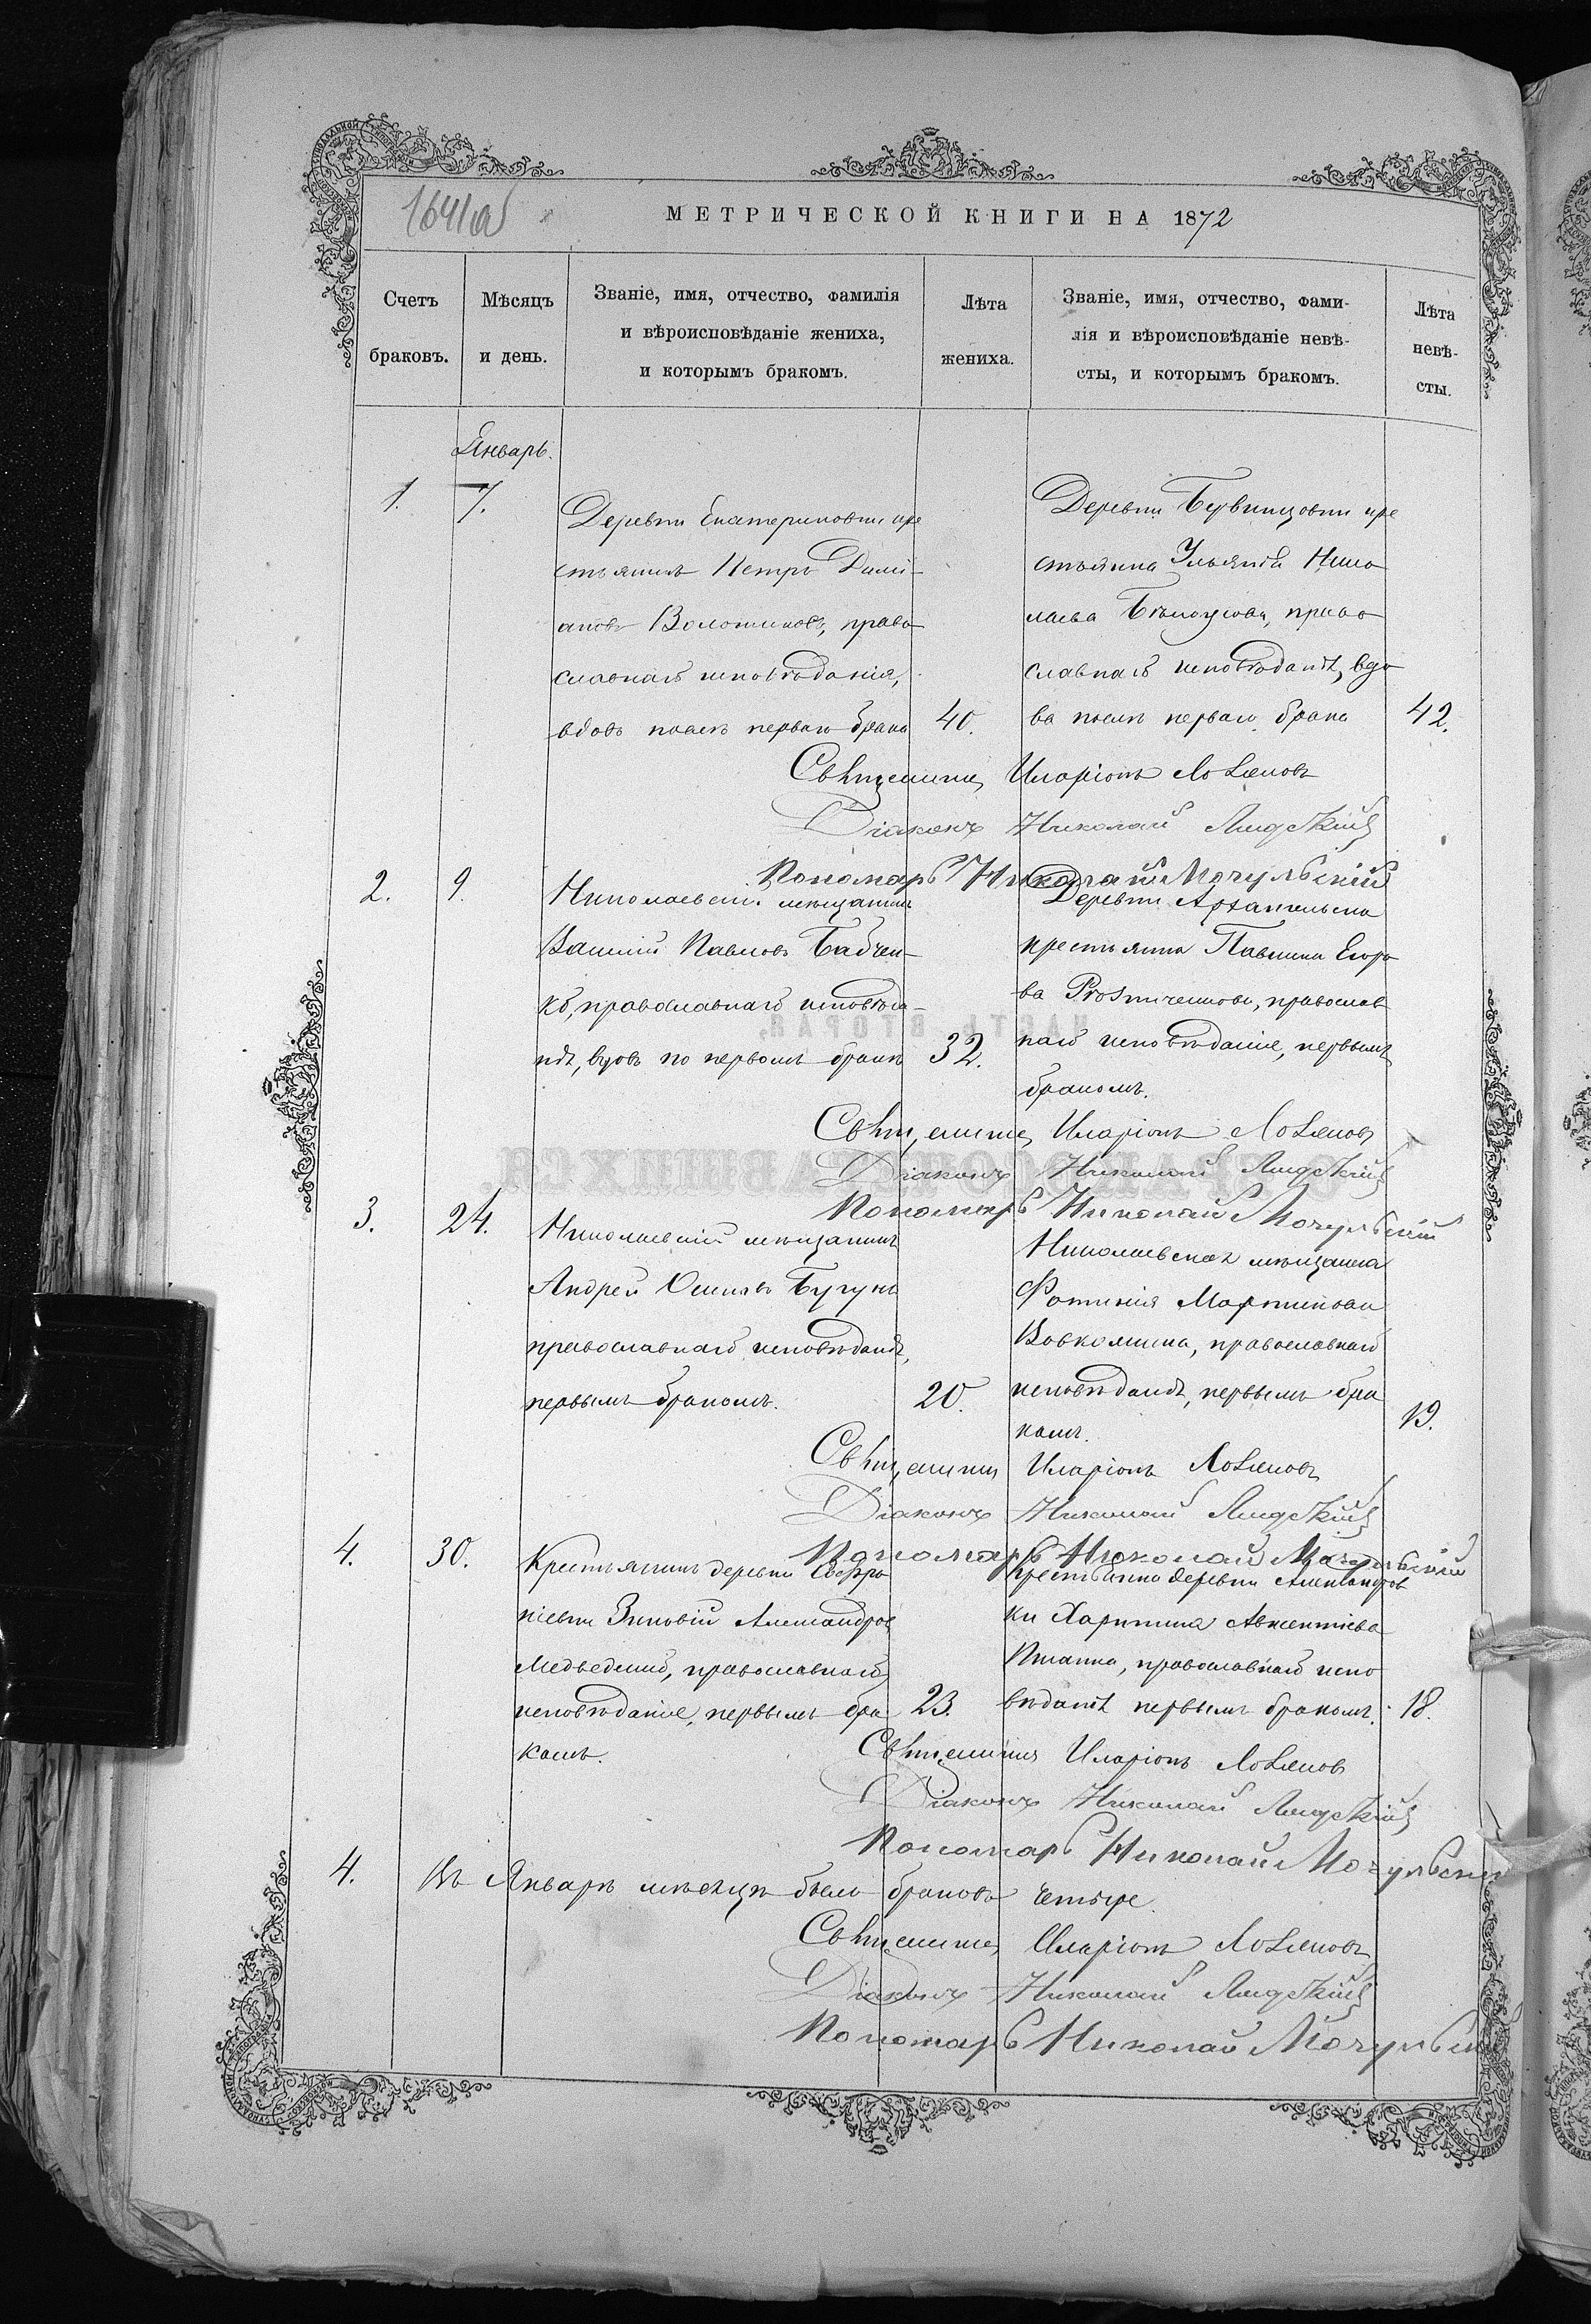 1641 об
МЕТРИЧЕСКОЙ КНИГИ НА 1872
Счетъ браковъ.
Мѣсяцъ и день.
Званіе, имя, отчество, фамилія
и вѣроисповѣданіе жениха,
и которымъ бракомъ.
Лѣта жениха.
Званіе, имя, отчество, фами-
лія и вѣроисповѣданіе невѣ-
сты, и которымъ бракомъ.
Лѣта невѣ-
сты.
Январь.
1.
7.
Деревни Екатериновки кре
стьянинъ Петръ Дамі-
ановъ право
славнаго исповѣданія,
вдовъ послѣ перваго брака
40.
Деревни кре
стьянка Ульянія Нико
лаева Бѣлоусова, право
славнаго исповѣданія, вдо
ва послѣ перваго брака
42.
Священникъ Иларіонъ
Діаконъ Николай
Пономарь Николай Мочульскій
2.
9.
Николаевскій мѣщанинъ
Василій Павловъ Бабчен-
ко, православнаго исповѣда-
нія, вдовъ по первомъ бракѣ
32.
Деревни Архангельска
крестьянка Егоро
ва православ
наго исповѣданія, первымъ
бракомъ.
Священникъ Иларіонъ
Діаконъ Николай
Пономарь Николай Мочульскій
3.
24.
Николаевскій мѣщанинъ
Андрей Осиповъ
православнаго исповѣданія,
первымъ бракомъ.
20.
Николаевская мѣщанка
Фотинія Мартинова
православнаго
исповѣданія, первымъ бра
комъ.
19.
Священникъ Иларіонъ
Діаконъ Николай
Пономарь Николай Мочульскій
4.
30.
Крестьянинъ деревни Софро
ніевки Зиновій Александровъ
православнаго
исповѣданія, первымъ бра
комъ.
23.
Крестьянка деревни Александров
ки Харитина Авксентіева
православнаго испо
вѣданія первымъ бракомъ.
18.
Священникъ Иларіонъ
Діаконъ Николай
Пономарь Николай Мочульскій
4.
Въ Январѣ мѣсяцѣ было браковъ четыре.
Священникъ Иларіонъ
Діаконъ Николай
Пономарь Николай Мочульскій